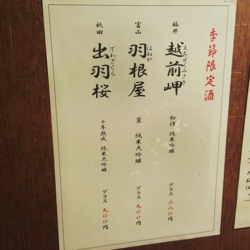 季節限定酒
福井
越前岬
えちぜんみさき
初搾 純米吟醸
グラス 六八〇円
富山
羽根屋
はねや
翼 純米大吟醸
グラス 九〇〇円
秋田
出羽桜
でわざくら
十年熟成 純米大吟醸
グラス 九〇〇円